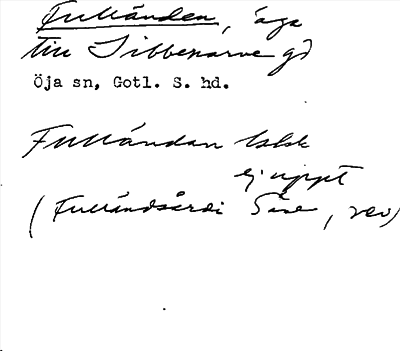 Fulländen, äga
till Sibbenarve gd
Öja sn, Gotl. S. hd.
Fulländan lslsk
ej uppt
(Fulländsårdi Säve, rev)